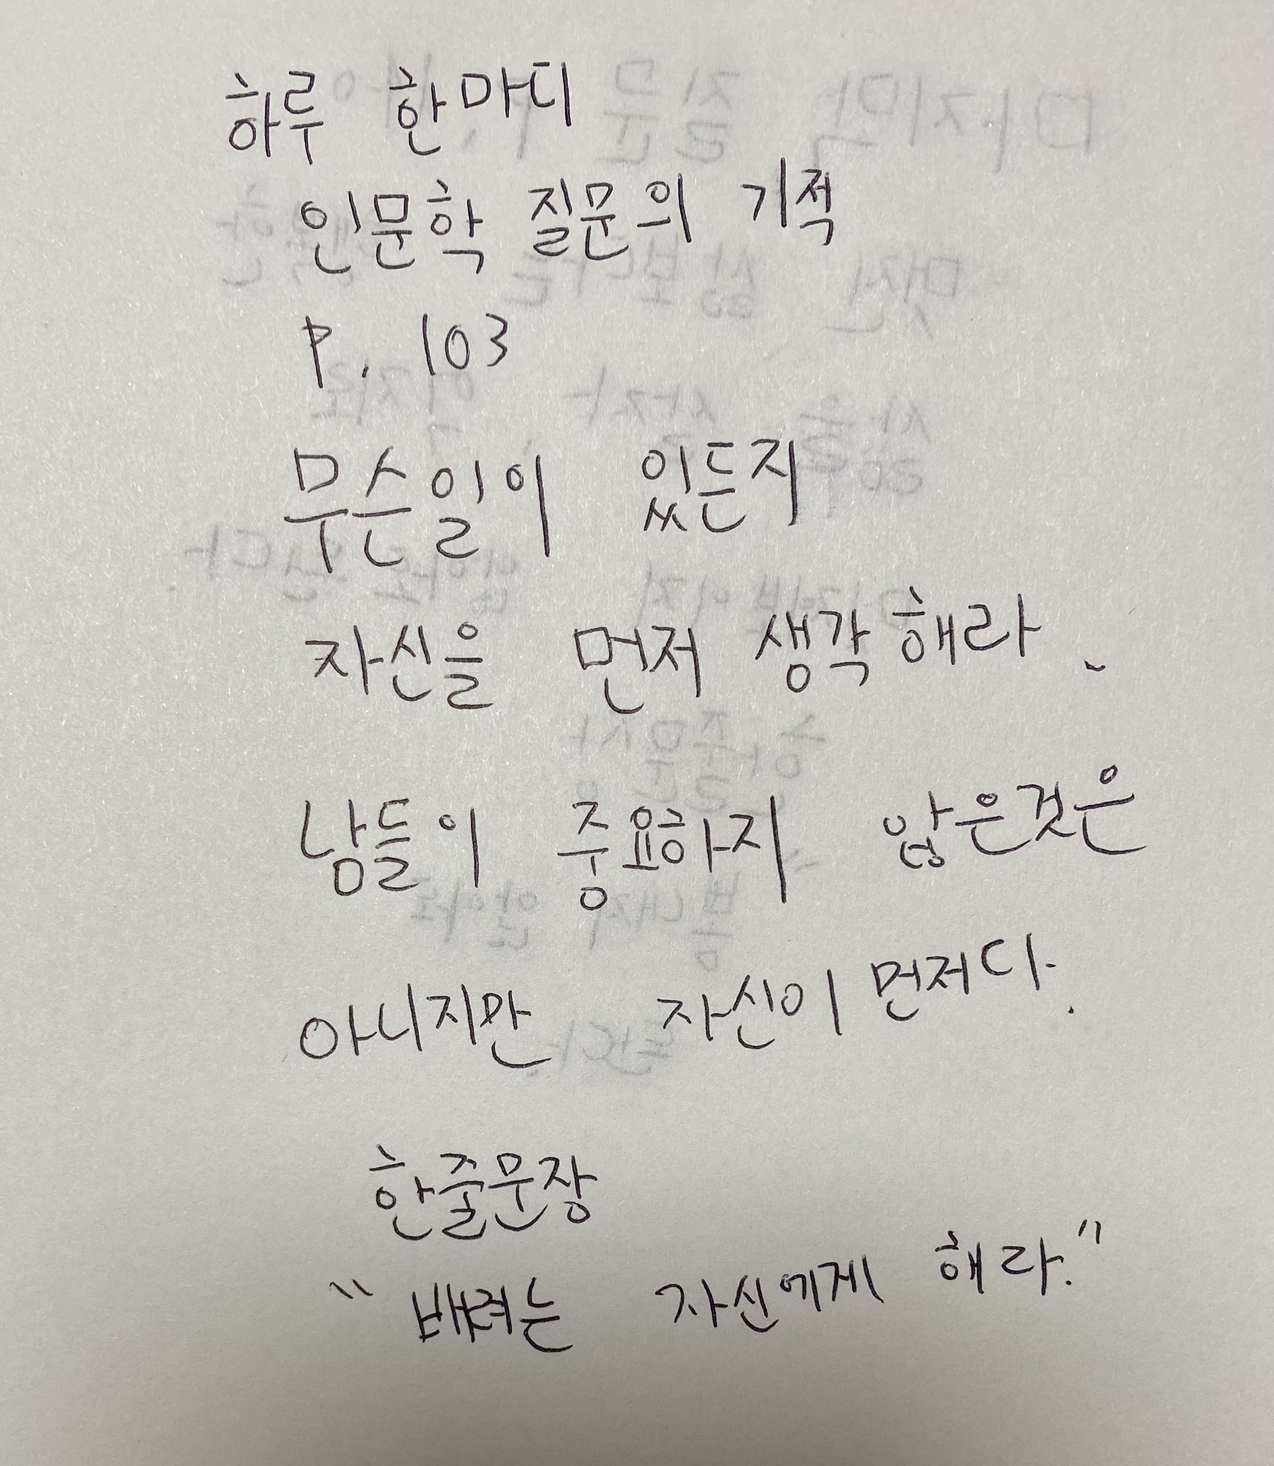 하루 한마디
인문학 질문의 기적
P. 103
무슨일이 있든지
자신을 먼저 생각해라.
남들이 중요하지 않은것은
아니지만 자신이 먼저다.
한줄문장
"배려는 자신에게 해라."